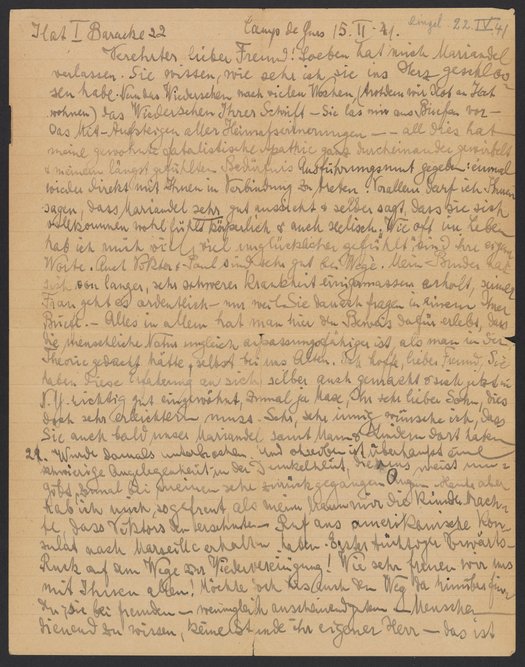 Ilat I Baracke 22 Camp de Gurs 15. II. 41. eingel. 22. IV. 41
Verehrter, lieber Freund! Soeben hat mich Mariandel
verlassen. Sie wissen, wie sehr ich sie ins Herz geschlos-
sen habe. Nun das Wiedersehen nach vielen Wochen (trotzdem wir Ilot an Ilot
wohnen) das Wiedersehen Ihrer Schrift – Sie las mir aus Briefen vor –
das Mit-Aufsteigen aller Heimatserinnerungen – – all dies hat
meine gewohnte fatalistische Apathie ganz durcheinander gewirbelt
& meinem längst gefühlten Bedürfnis Ausführungsmut gegeben: einmal
wieder direkt mit Ihnen in Verbindung zu treten. Vor allem darf ich Ihnen
sagen, dass Mariandel sehr gut aussieht & selber sagt, dass sie sich
vollkommen wohl fühlt körperlich & auch seelisch. "Wie oft im Leben
hab ich mich viel, viel unglücklicher gefühlt" sind ihre eignen
Worte. Auch Viktor & Paul sind sehr gut bei Wege. Mein Bruder hat
sich von langer, sehr schwerer Krankheit einigermassen erholt, seiner
Frau geht es ordentlich – nur weil Sie danach fragen in einem Ihrer
Briefe. – Alles in allem hat man hier den Beweis dafür erlebt, dass
die menschliche Natur ungleich anpassungsfähiger ist, als man in der
Theorie gedacht hätte, selbst bei uns Alten. Ich hoffe, lieber Freund, Sie
haben diese Erfahrung an sich selber auch gemacht & sich jetzt in
N.Y. richtig gut eingewöhnt, zumal ja Maxe Ihr sehr lieber Sohn, dies
doch sehr erleichtern muss. Sehr, sehr innig wünsche ich, dass
Sie auch bald unser Mariandel samt Mann & Kindern dort haben
22. Wurde damals unterbrochen. Und schreiben ist überhaupt eine
schwierige Angelegenheit in der Dunkelheit, die uns meist um-
gibt, zumal bei meinen sehr zurückgegangenen Augen. Heute aber
hab ich mich so gefreut als mein Frau mir die Kinder brach-
te, dass Viktors den ersehnten Ruf aufs amerikanische Kon-
sulat nach Marseille erhalten haben. Erster tüchtiger Vorwärts-
Ruck auf dem Wege zur Wiedervereinigung! Wie sehr freuen wir uns
mit Ihnen allen! Möchte doch uns auch der Weg da hinüber
die bei fremden – wenngleich anscheinend guten – Menschen
dienend zu wissen, keine Stunde ihr eigener Herr – das ist